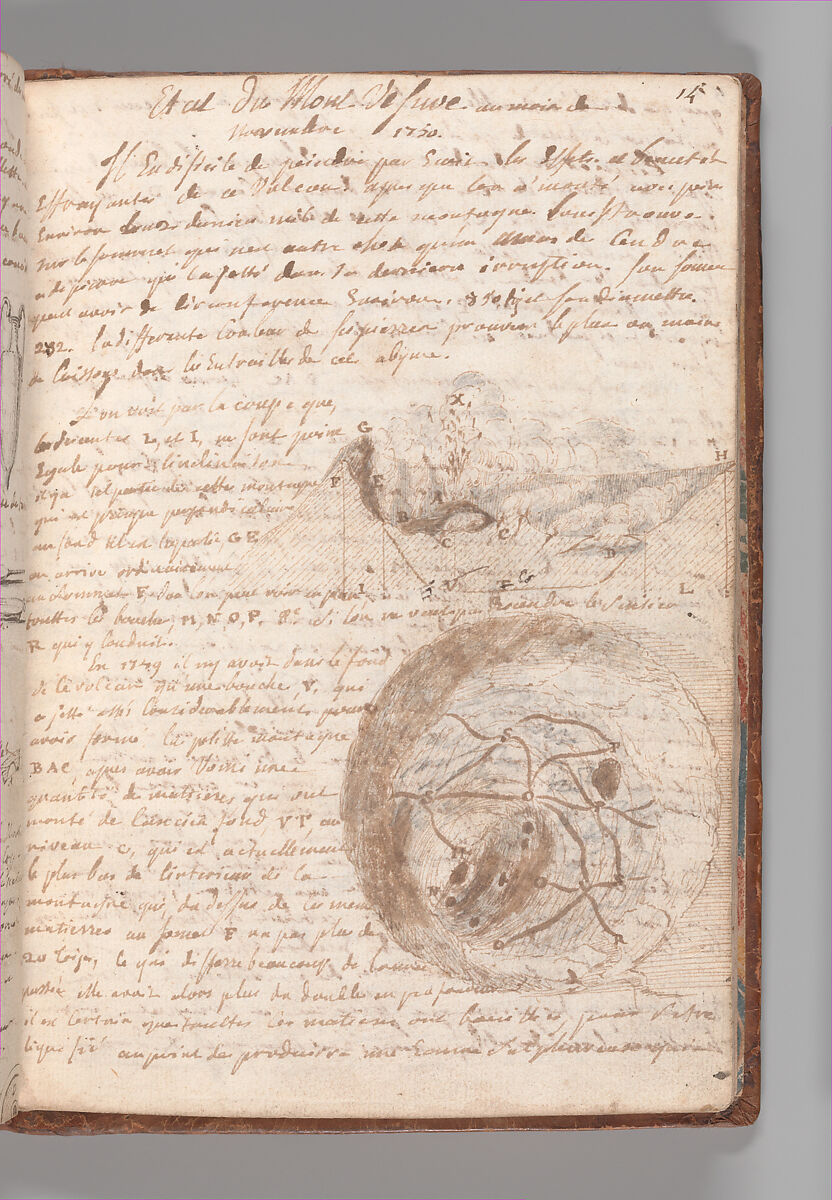 14
Etat Du Mont Vesuve au mois de
Novembre 1750.
Il En dificile de peindre par Ecrit les Effets et beautés
Effrayantes de ce Volcan. apres que lon a monté avec peine
Environ deux milles de cette montagne. lons se trouve
sur le sommet qui nen autre chose qu'un amas de Cendre
et de pierre qu'il a jetté dans sa derniere irruption. son sommet
peut avoir de Circonference Environ. 850 et son Diamettre.
282. la differente Couleur de ses pierres prouvent le plus ou moins
de Cuissons dans les Entrailles de cet abyme.
L'on voit par la coupe que,
les L, et I, ne sont point
Egale pour l'inclinaison
il y a telle partie de cette montagne
qui est presque perpendiculaire
au fond telle la partie, GE,
on arrive ordinairement
au sommet F, dou lon peut voir
touttes les bouches, M, N, O, P. &c. si lon ne veut pas descendre le sentier
R qui y Conduit.
En 1749 il ny avoit dans le fond
de ce volcan qu'une bouche V, qui
a jetté assés Considerablement pour
avoir formé la petite montagne
BAC, apres avoir Vomi une
quantité de matieres qui ont
monté de l'ancien fond VY, au
niveau C, qui est actuellement
le plus bas de l'interieur de la
montagne qui, du dessus de ces memes
matierres au sommet F na pas plus de
20 toises, Ce qui differe beaucoup de l'année
passée elle avoit alors plus du double en profondeur
il est Certain que touttes ces matieres ont pour Estre
liquifié au point de produirre une Ecume Sulphureuse
X
G
H
F
E
A
B
C
C
D
I
V
F
L
S
T
M
N
S
R